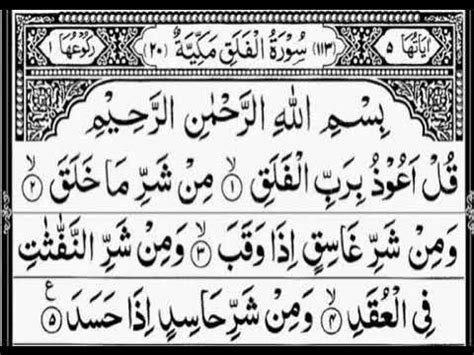 اٰیَاتُهَا ۵ (۱۱۳) سُوْرَةُ الْفَلَقِ مَكِّیَّةٌ (۲۰) رُكُوْعُهَا ۱
بِسْمِ اللّٰهِ الرَّحْمٰنِ الرَّحِیْمِ
قُلْ اَعُوْذُ بِرَبِّ الْفَلَقِ ۙ﴿۱﴾ مِنْ شَرِّ مَا خَلَقَ ۙ﴿۲﴾
وَ مِنْ شَرِّ غَاسِقٍ اِذَا وَقَبَ ۙ﴿۳﴾ وَ مِنْ شَرِّ النَّفّٰثٰتِ
فِی الْعُقَدِ ۙ﴿۴﴾ وَ مِنْ شَرِّ حَاسِدٍ اِذَا حَسَدَ ﴿۵﴾ ع